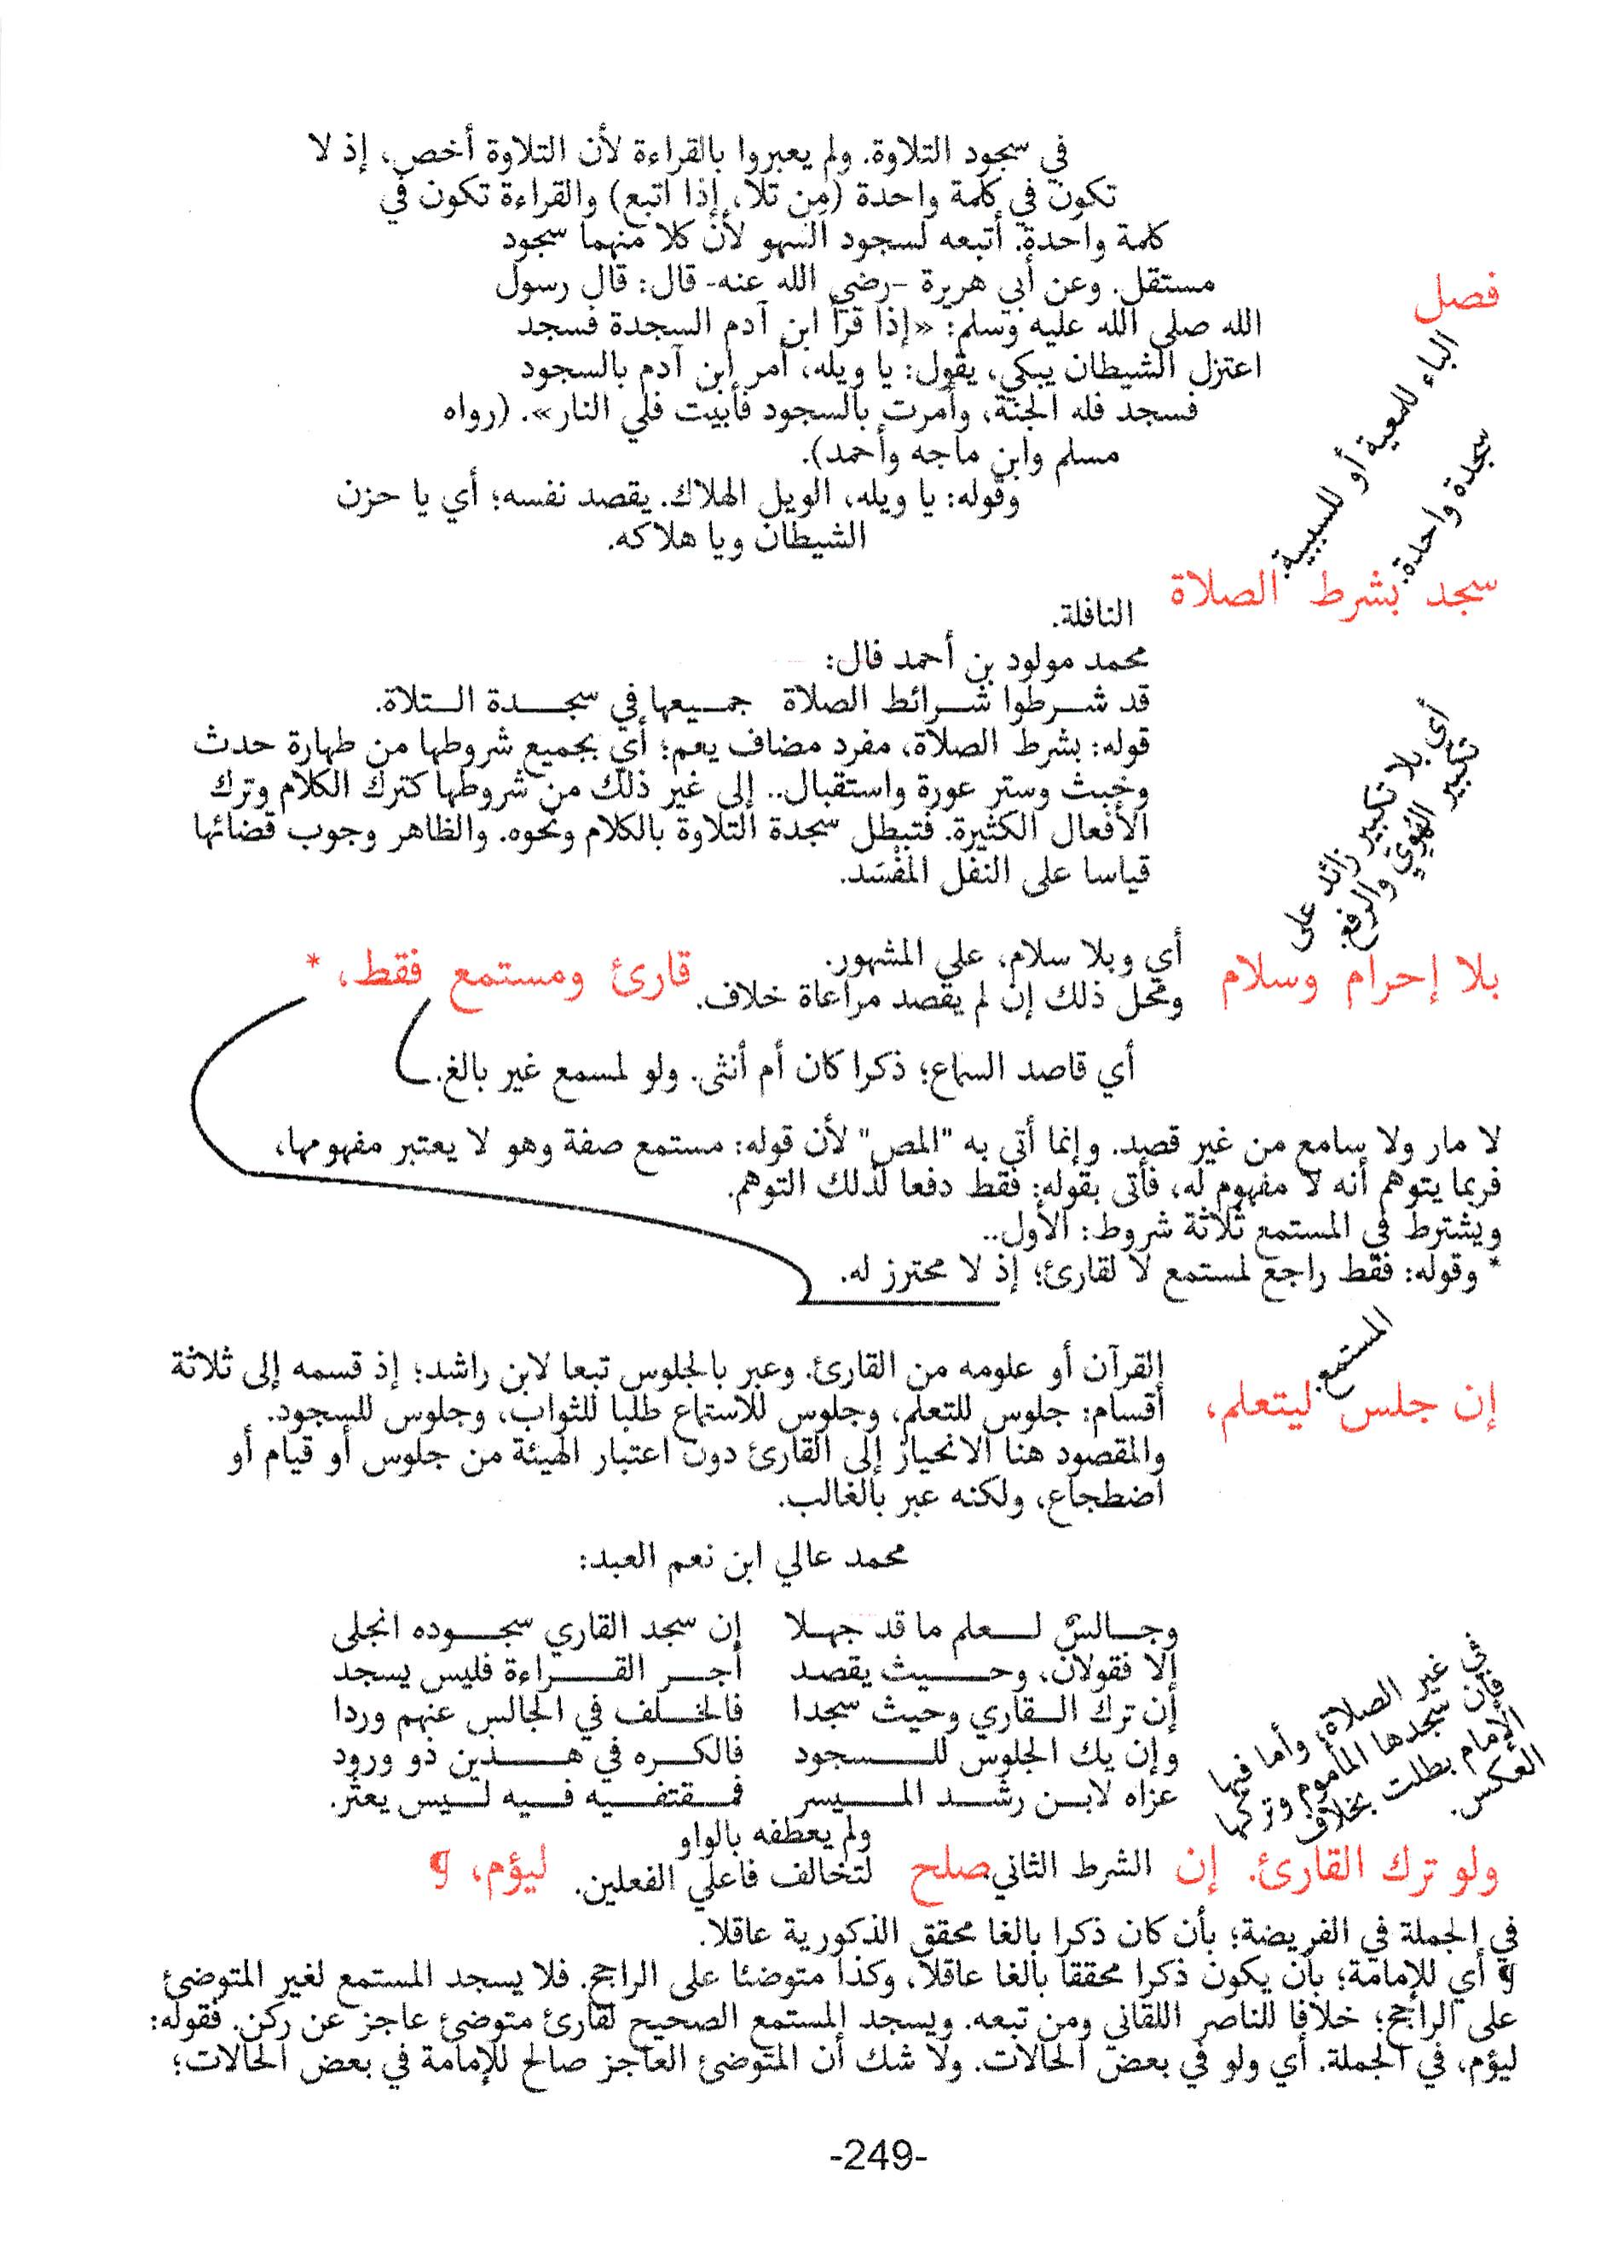 فصل
في سجود التلاوة. ولم يعبروا بالقراءة لأن التلاوة أخص، إذ لا
تكون في كلمة واحدة (مِن تلا، إذا اتبع) والقراءة تكون في
كلمة واحدة. أتبعه لسجود السهو لأن كلا منهما سجود
مستقل. وعن أبي هريرة -رضي الله عنه- قال: قال رسول
الله صلى الله عليه وسلم: «إذا قرأ ابن آدم السجدة فسجد
اعتزل الشيطان يبكي، يقول: يا ويله، أمر ابن آدم بالسجود
فسجد فله الجنة، وأمرت بالسجود فأبيت فلي النار». (رواه
مسلم وابن ماجه وأحمد).
وقوله: يا ويله، الويل الهلاك. يقصد نفسه؛ أي يا حزن
الشيطان ويا هلاكه.
سجدة واحدة.
الباء للمعية أو للسببية.
سجد بشرط الصلاة
النافلة.
محمد مولود بن أحمد فال:
قد شـرطوا شـرائط الصلاة جمـيعها في سجـــدة الـتلاة.
قوله: بشرط الصلاة، مفرد مضاف يعم؛ أي بجميع شروطها من طهارة حدث
وخبث وستر عورة واستقبال.. إلى غير ذلك من شروطها كترك الكلام وترك
الأفعال الكثيرة. فتبطل سجدة التلاوة بالكلام ونحوه. والظاهر وجوب قضائها
قياسا على النفل المُفْسَد.
أي بلا تكبير زائد على
تكبير الهُوِيّ والرفع.
بلا إحرام وسلام
أي وبلا سلام، على المشهور.
ومحل ذلك إن لم يقصد مراعاة خلاف.
قارئ ومستمع فقط، *
أي قاصد السماع؛ ذكرا كان أم أنثى. ولو لمسمع غير بالغ.
لا مار ولا سامع من غير قصد. وإنما أتى به "المص" لأن قوله: مستمع صفة وهو لا يعتبر مفهومها،
فربما يتوهم أنه لا مفهوم له، فأتى بقوله: فقط دفعا لذلك التوهم.
ويشترط في المستمع ثلاثة شروط: الأول..
* وقوله: فقط راجع لمستمع لا لقارئ؛ إذ لا محترز له.
المستمع.
إن جلس ليتعلم،
القرآن أو علومه من القارئ. وعبر بالجلوس تبعا لابن راشد؛ إذ قسمه إلى ثلاثة
أقسام: جلوس للتعلم، وجلوس للاستماع طلبا للثواب، وجلوس للسجود.
والمقصود هنا الانحياز إلى القارئ دون اعتبار الهيئة من جلوس أو قيام أو
اضطجاع، ولكنه عبر بالغالب.
محمد عالي ابن نعم العبد:
وجـالسٌ لـعلم ما قد جهـلا إن سجد القاري سجـوده انجلى
إلا فقولان، وحــيث يقصد أجـر القـــراءة فليس يسجد
إن ترك الـقاري وحيث سجدا فالخـلف في الجالس عنهم وردا
وإن يك الجلوس للـــسجود فالكـره في هـــذين ذو ورود
عزاه لابـن رشـد المـــيسر فمـقتفـيه فـيه لـيس يعثر.
في غير الصلاة؛ وأما فيها
فإن سجدها المأموم وتركها
الإمام بطلت بخلاف
العكس.
ولو ترك القارئ. إن الشرط الثاني. صلح
ولم يعطفه بالواو
لتخالف فاعلي الفعلين.
ليؤم، ¶
في الجملة في الفريضة؛ بأن كان ذكرا بالغا محقق الذكورية عاقلا.
¶ أي للإمامة؛ بأن يكون ذكرا محققا بالغا عاقلا، وكذا متوضئا على الراجح. فلا يسجد المستمع لغير المتوضئ
على الراجح؛ خلافا للناصر اللقاني ومن تبعه. ويسجد المستمع الصحيح لقارئ متوضئ عاجز عن ركن. فقوله:
ليؤم، في الجملة. أي ولو في بعض الحالات. ولا شك أن المتوضئ العاجز صالح للإمامة في بعض الحالات؛
-249-